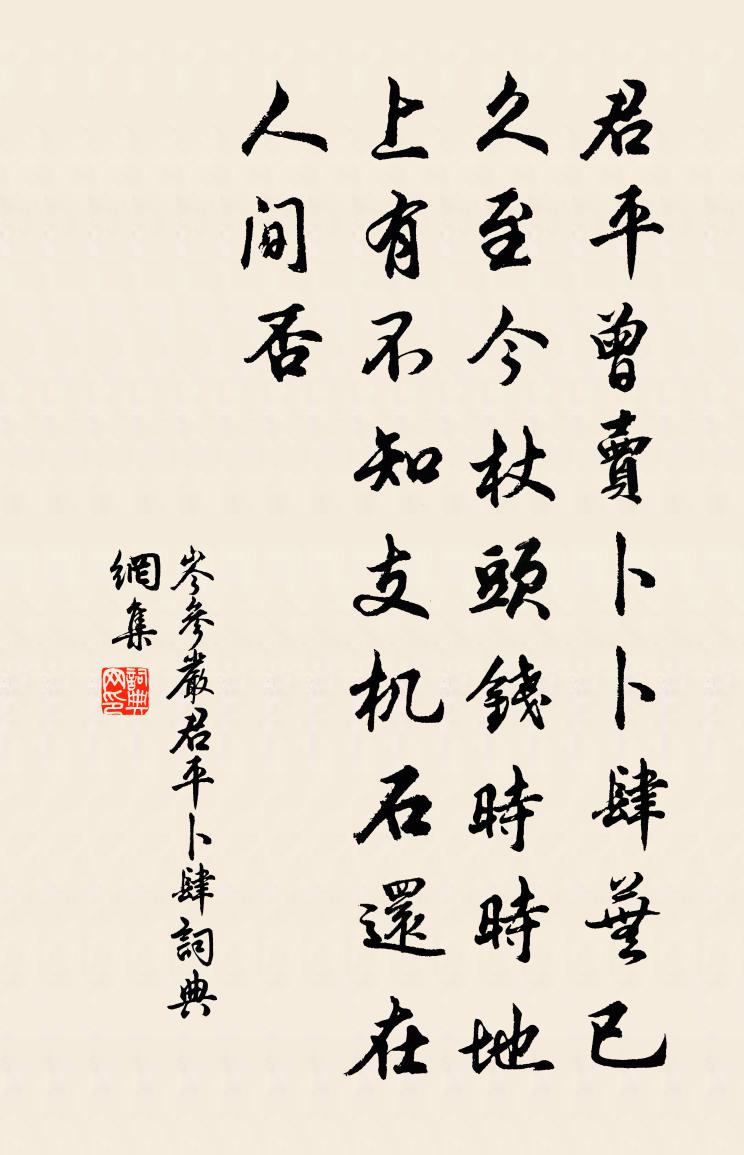 君平曾賣卜卜肆蕪已
久至今杖頭錢時時地
上有不知支机石還在
人间否
岑參嚴君平卜肆詞典
網集
詞典网印